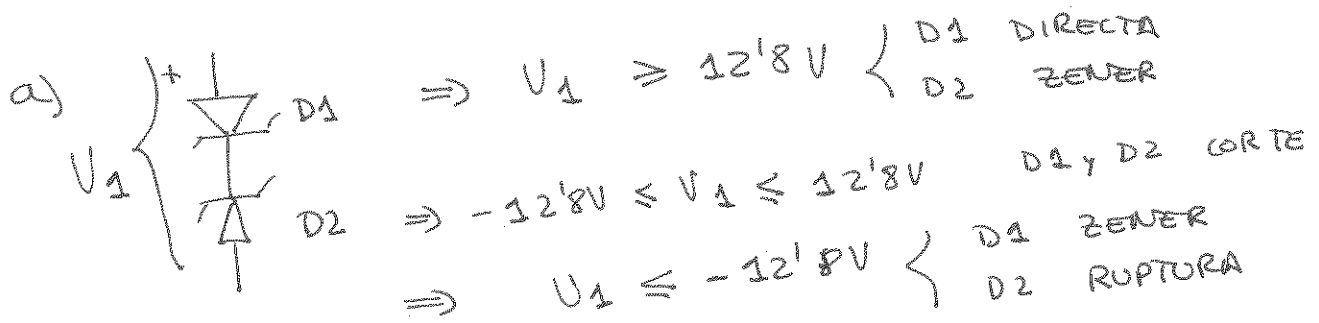 a) V1 + D1 ⇒ V1 ≥ 12'8V { D1 DIRECTA
D2 ZENER
D2 ⇒ -12'8V ≤ V1 ≤ 12'8V D1 y D2 CORTE
⇒ V1 ≤ -12'8V { D1 ZENER
D2 RUPTURA